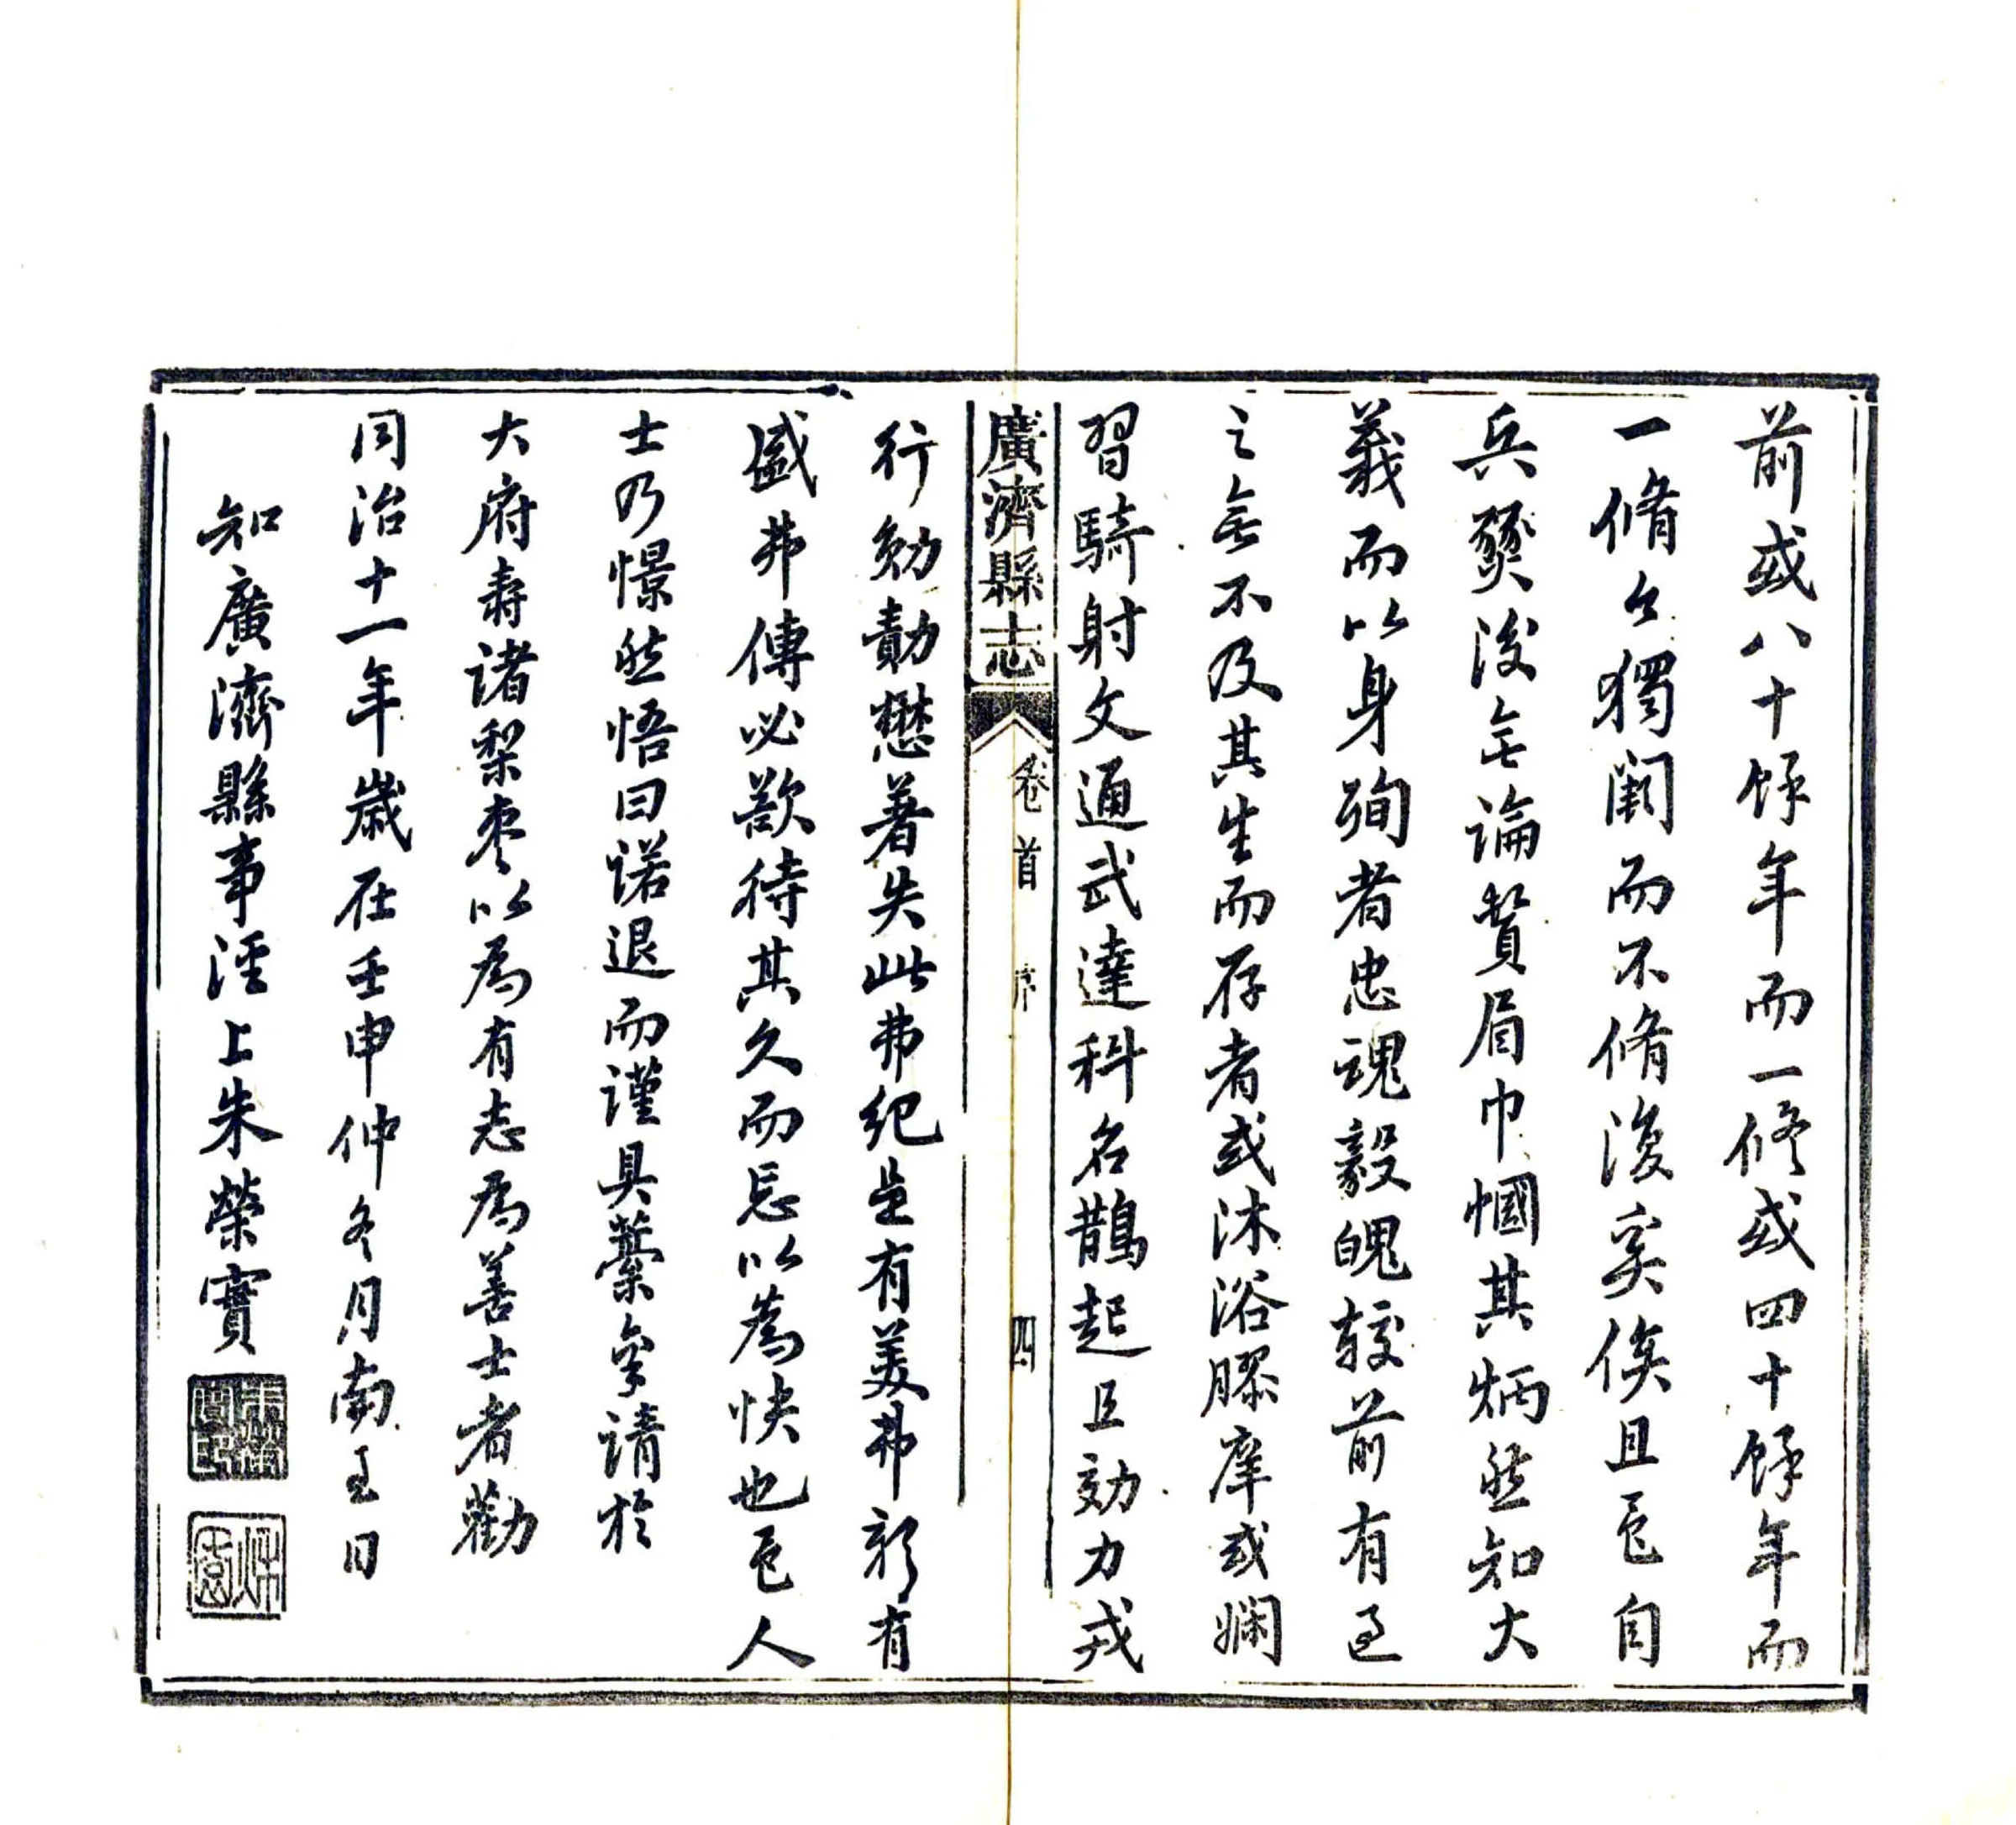 前或八十餘年而一修或四十餘年而
一脩今獨闕而不脩後奚俟且邑自
兵燹後無論賛眉巾幗其炳然知大
義而以身殉者忠魂毅魄較前有過
之無不及其生而存者或沐浴膠庠或嫻
習騎射文通武達科名鵲起且効力戎
廣濟縣志 卷首 序 四
行勉勣懋著失此弗紀是有美弗彰有
盛弗傳必歆待其久而忘以為快也邑人
士乃憬然悟曰諾退而謹具藁彙請於
大府壽諸梨棗以為有志為善士者勸
同治十一年歲在壬申仲冬月南至日
知廣濟縣事涇上朱榮實
朱榮實印